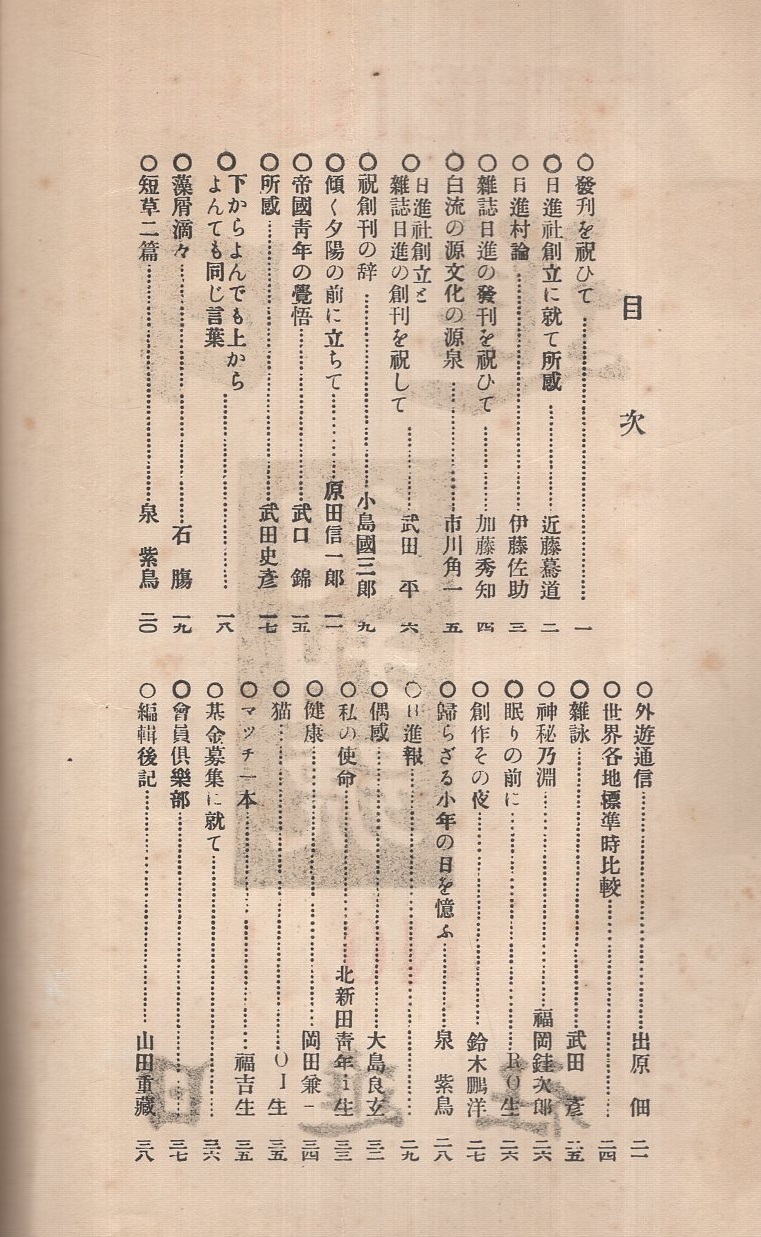 目次
○發刊を祝ひて……一
○日進社創立に就て所感……近藤驀道 二
○日進村論……伊藤佐助 三
○雜誌日進の發刊を祝ひて……加藤秀知 四
○白流の源文化の源泉……市川角一 五
○日進社創立と
雜誌日進の創刊を祝して……武田平 六
○祝創刊の辞……小島國三郎 九
○傾く夕陽の前に立ちて……原田信一郎 一一
○帝國靑年の覺悟……武口錦 一五
○所感……武田史彥 一七
○下からよんでも上から
よんても同じ言葉……一八
○藻屑滴々……石膓 一九
○短草二篇……泉紫鳥 二〇
○外遊通信……出原佃 二一
○世界各地標準時比較……二四
○雜詠……武田彥 二五
○神秘乃淵……福岡銈次郎 二六
○眠りの前に……RO生 二六
○創作その夜……鈴木鵬洋 二七
○歸らざる小年の日を憶ふ……泉紫鳥 二八
○日進報……二九
○偶感……大島良玄 三二
○私の使命……北新田靑年i生 三三
○健康……岡田兼一 三四
○猫……OI生 三五
○マッチ一本……福吉生 三五
○基金募集に就て……三六
○會員俱樂部……三七
○編輯後記……山田重藏 三八